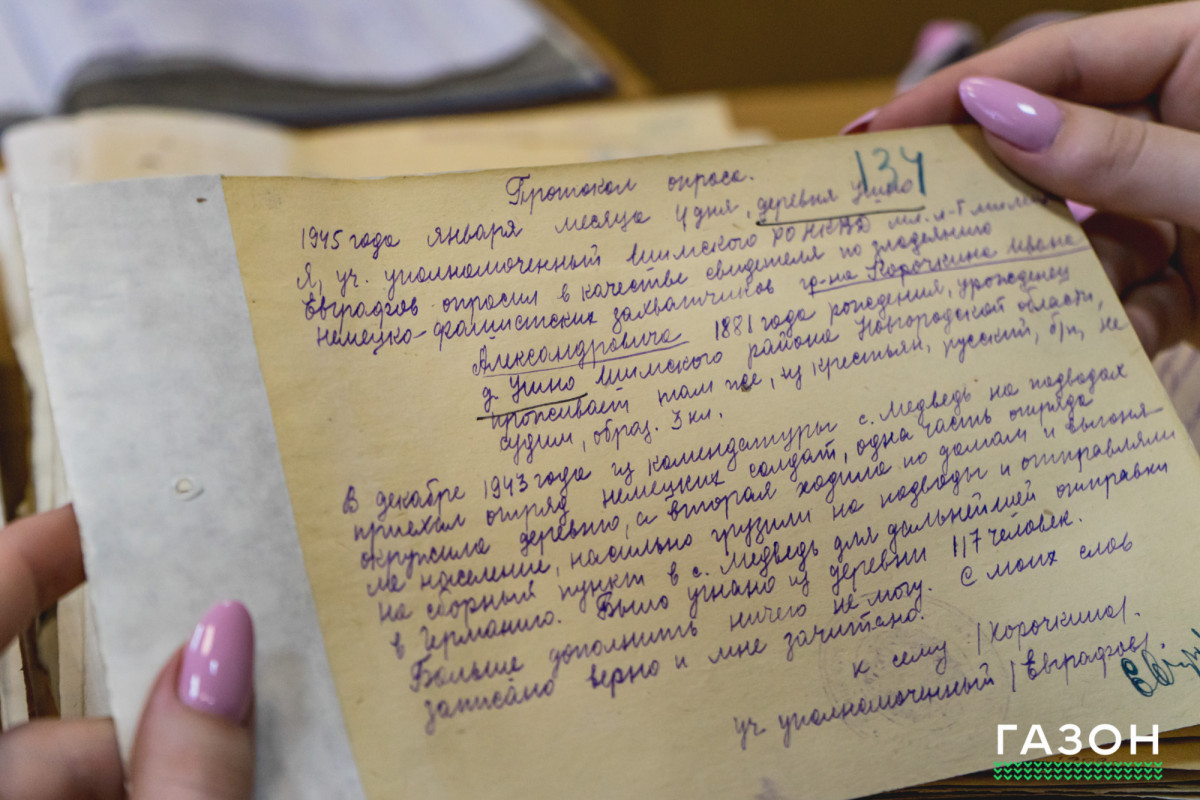 134
Протокол опроса.
1945 года января месяца 4 дня, деревня Ушно
Я, уч. уполномоченный Шимского РО НКВД мл. л-т милиции
Евграфов опросил в качестве свидетеля по злодеянию
немецко-фашистских захватчиков гр-на Корочкина Ивана
Александровича 1881 года рождения, урожденец
д. Ушно Шимского района Новгородской области,
проживает там же, из крестьян, русский, б/п, не
судим, образ. 3 кл.
В декабре 1943 года из комендатуры с. Медведь на подводах
приехал отряд немецких солдат, одна часть отряда
окружила деревню, а вторая ходила по домам и выгоня-
ла население, насильно грузили на подводы и отправляли
на сборный пункт в с. Медведь для дальнейшей отправки
в Германию. Было угнано из деревни 117 человек.
Больше дополнить ничего не могу. С моих слов
записано верно и мне зачитано.
к сему /Корочкин/.
уч. уполномоченный /Евграфов/
ГАЗОН